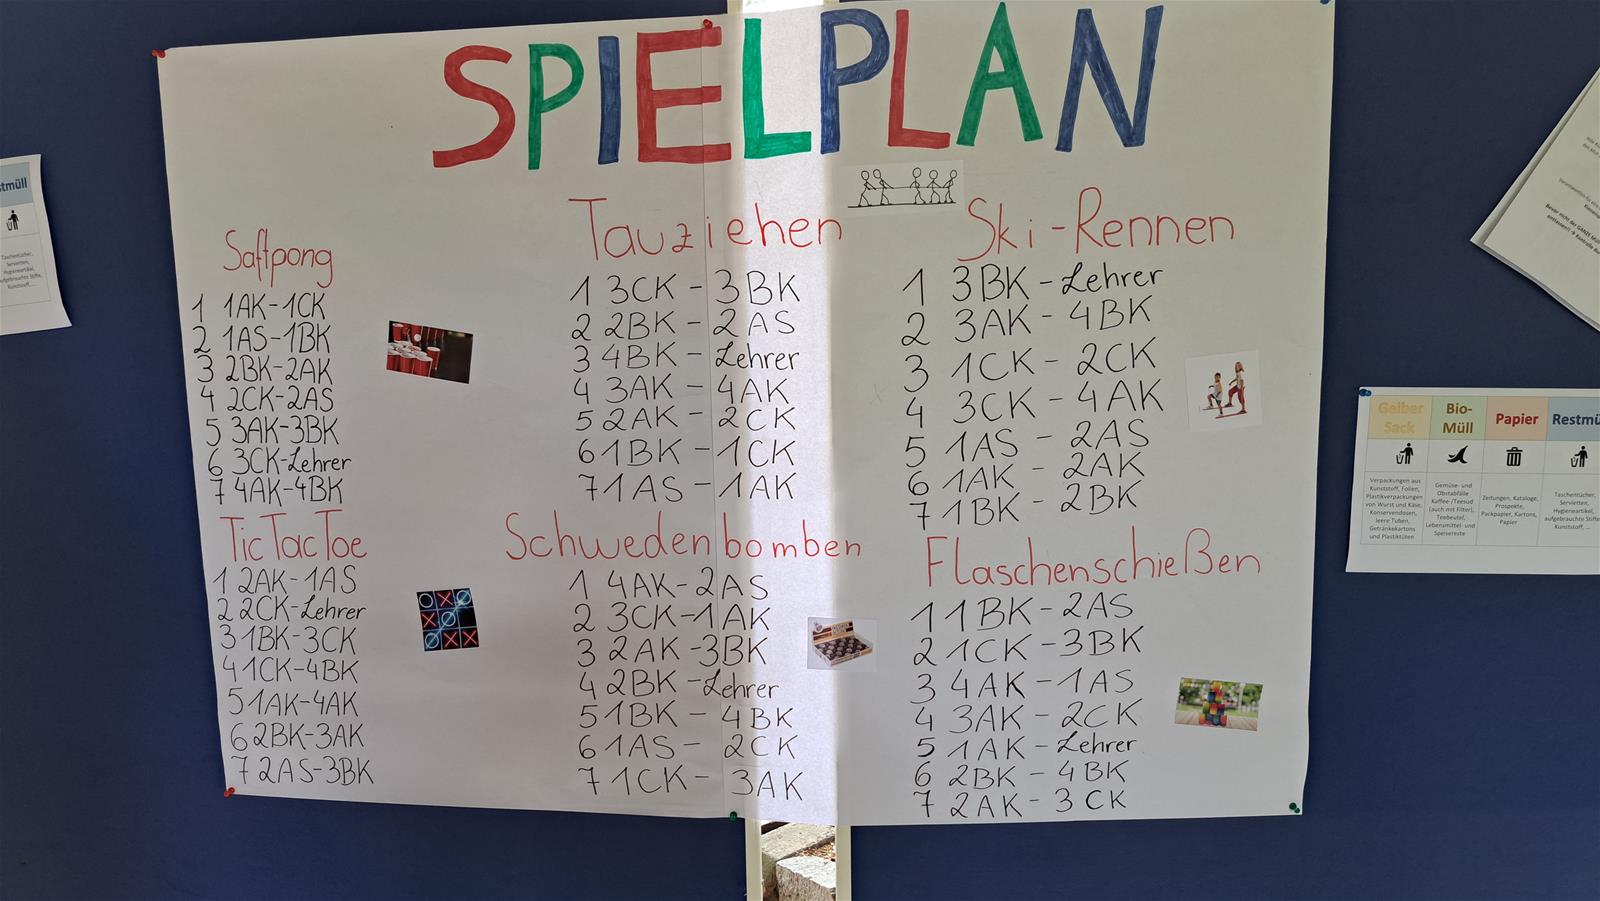 SPIELPLAN
Saftpong
1 1AK-1CK
2 1AS-1BK
3 2BK-2AK
4 2CK-2AS
5 3AK-3BK
6 3CK-Lehrer
7 4AK-4BK
Tauziehen
1 3CK - 3BK
2 2BK - 2AS
3 4BK - Lehrer
4 3AK - 4AK
5 2AK - 2CK
6 1BK - 1CK
7 1AS - 1AK
Ski-Rennen
1 3BK - Lehrer
2 3AK - 4BK
3 1CK - 2CK
4 3CK - 4AK
5 1AS - 2AS
6 1AK - 2AK
7 1BK - 2BK
TicTacToe
1 2AK-1AS
2 2CK-Lehrer
3 1BK-3CK
4 1CK-4BK
5 1AK-4AK
6 2BK-3AK
7 2AS-3BK
Schwedenbomben
1 4AK-2AS
2 3CK-1AK
3 2AK-3BK
4 2BK-Lehrer
5 1BK - 4BK
6 1AS - 2CK
7 1CK - 3AK
Flaschenschießen
1 1BK - 2AS
2 1CK - 3BK
3 4AK - 1AS
4 3AK - 2CK
5 1AK - Lehrer
6 2BK - 4BK
7 2AK - 3CK
Gelber Sack
Verpackungen aus
Kunststoff, Folien,
Plastikverpackungen
von Wurst und Käse,
Konservendosen,
leere Tuben,
Getränkekartons
und Plastiktüten
Bio-
Müll
Gemüse- und
Obstabfälle
Kaffee-/Teesud
(auch mit Filter),
Teebeutel,
Lebensmittel- und
Speisereste
Papier
Zeitungen, Kataloge,
Prospekte,
Packpapier, Kartons,
Papier
Restmü
Taschentücher,
Servietten,
Hygieneartikel,
aufgebrauchte Stifte
Kunststoff, ...
stmüll
Taschentücher,
Servietten,
Hygieneartikel,
aufgebrauchte Stifte,
Kunststoff, ...